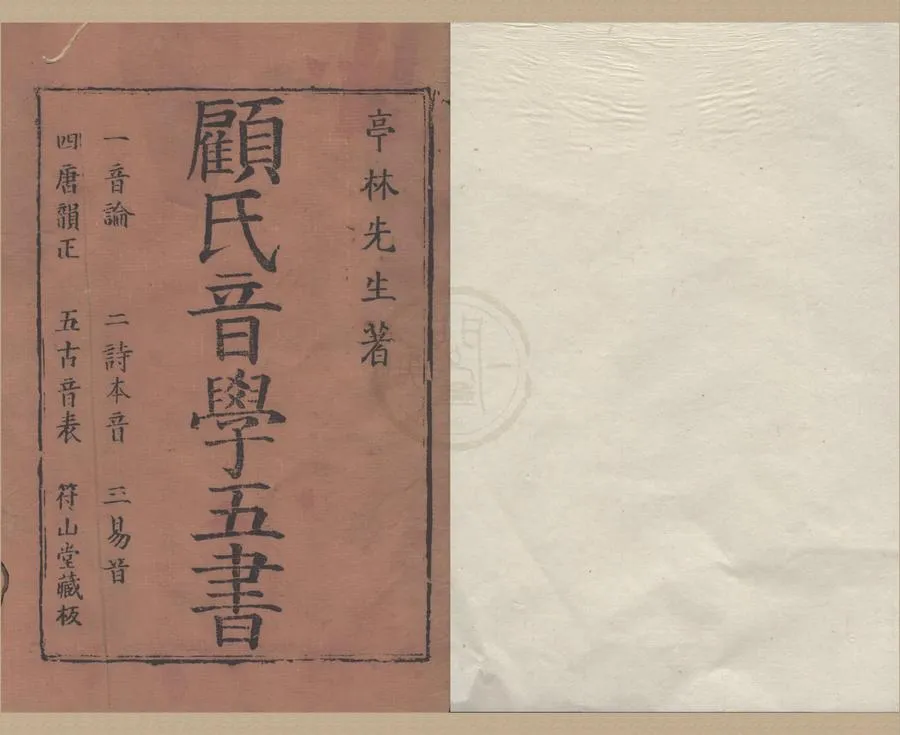 亭林先生著
顧氏音學五書
一音論 二詩本音 三易音
四唐韻正 五古音表 符山堂藏板